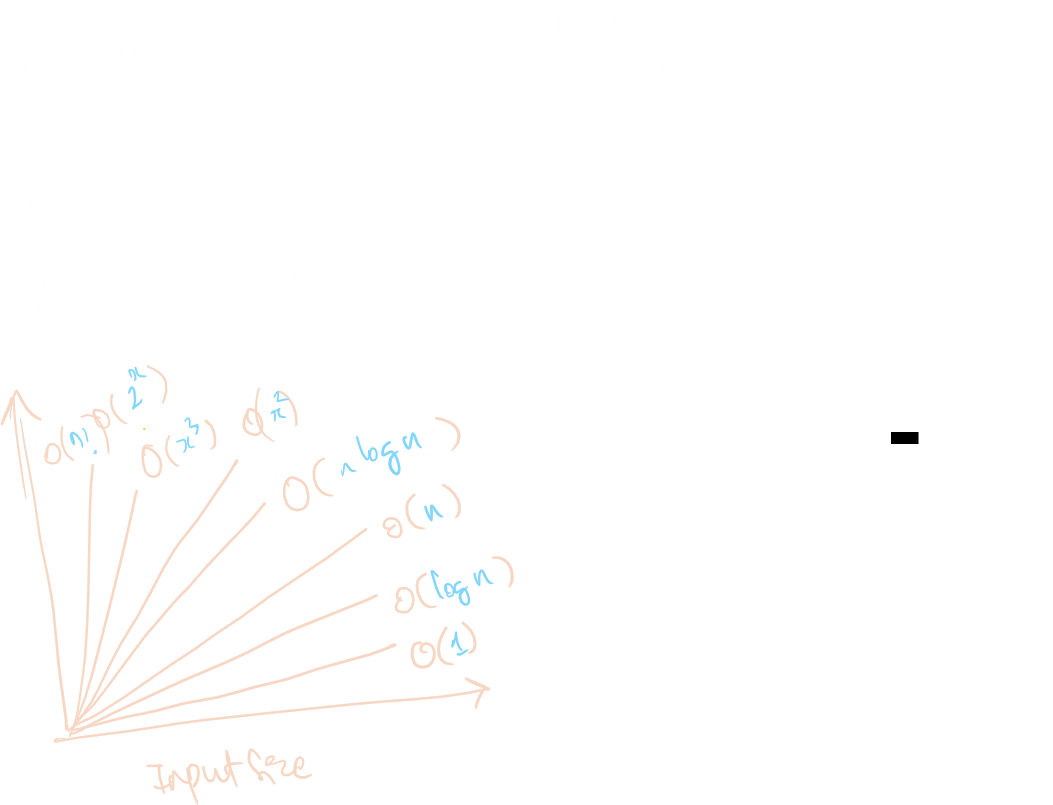 O(n!)
O(2^n)
O(n^3)
O(n^2)
O(n log n)
O(n)
O(log n)
O(1)
Input Size